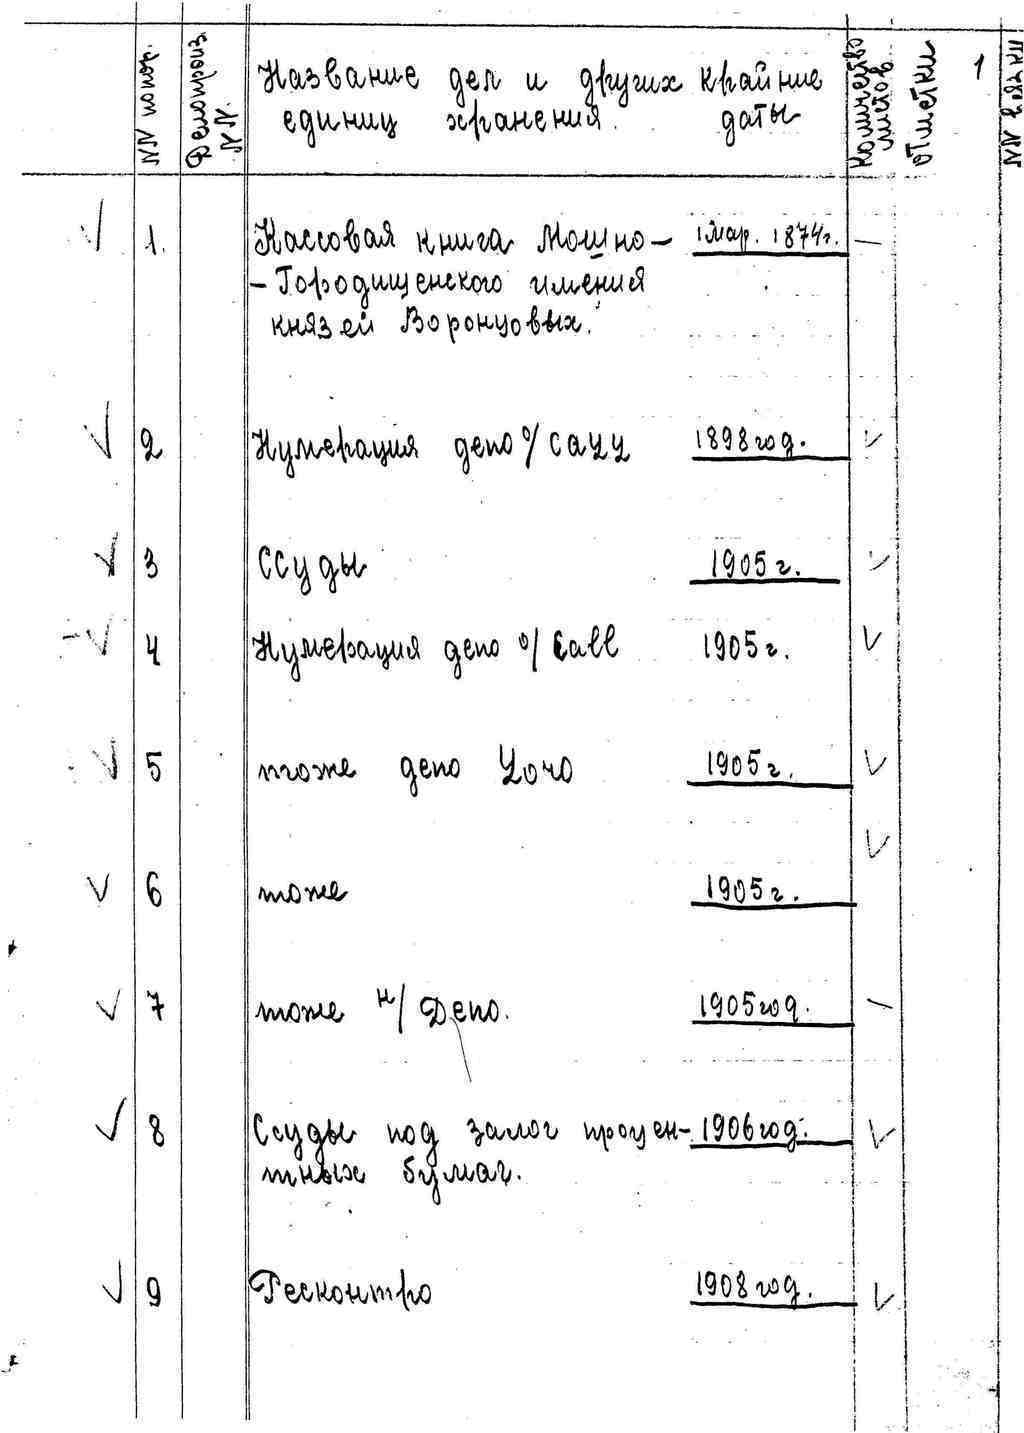 NN попор.
Делопроиз. NN.
Название дел и других единиц хранения.
крайние даты
Количество листов
отметки
1
1. Кассовая книга Мошно- 1 мар. 1874г. —
- Городищенского имения
князей Воронцовых.
2 Нумерация депо о/ 1898 год.
3 ССуды 1905 г.
4 Нумерация депо о/ Call 1905 г.
5 тоже депо 1905 г.
6 тоже 1905 г.
7 тоже н/ Депо. 1905 год. —
8 Ссуды под залог процен- 1906 год.
тных бумаг.
9 Ресконтро 1908 год.